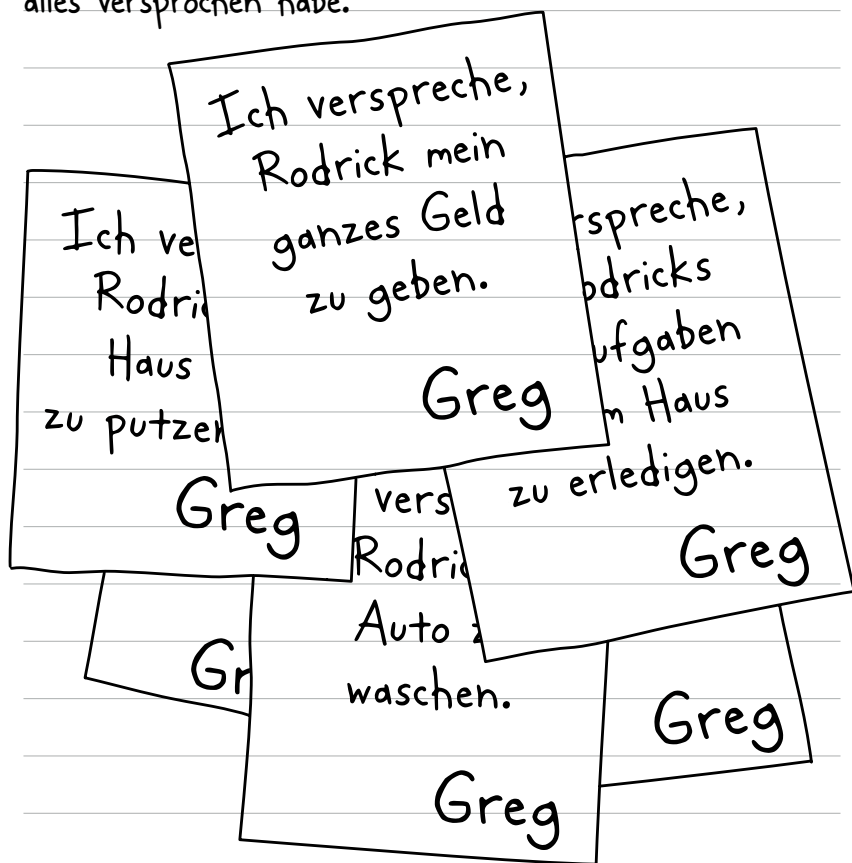 alles versprochen habe.
Ich verspreche,
Rodrick mein
ganzes Geld
zu geben.
Greg
Ich ve
Rodri
Haus
zu putzen
Greg
rspreche,
odricks
ufgaben
Haus
zu erledigen.
Greg
vers
Rodric
Auto
waschen.
Greg
Gr
Greg